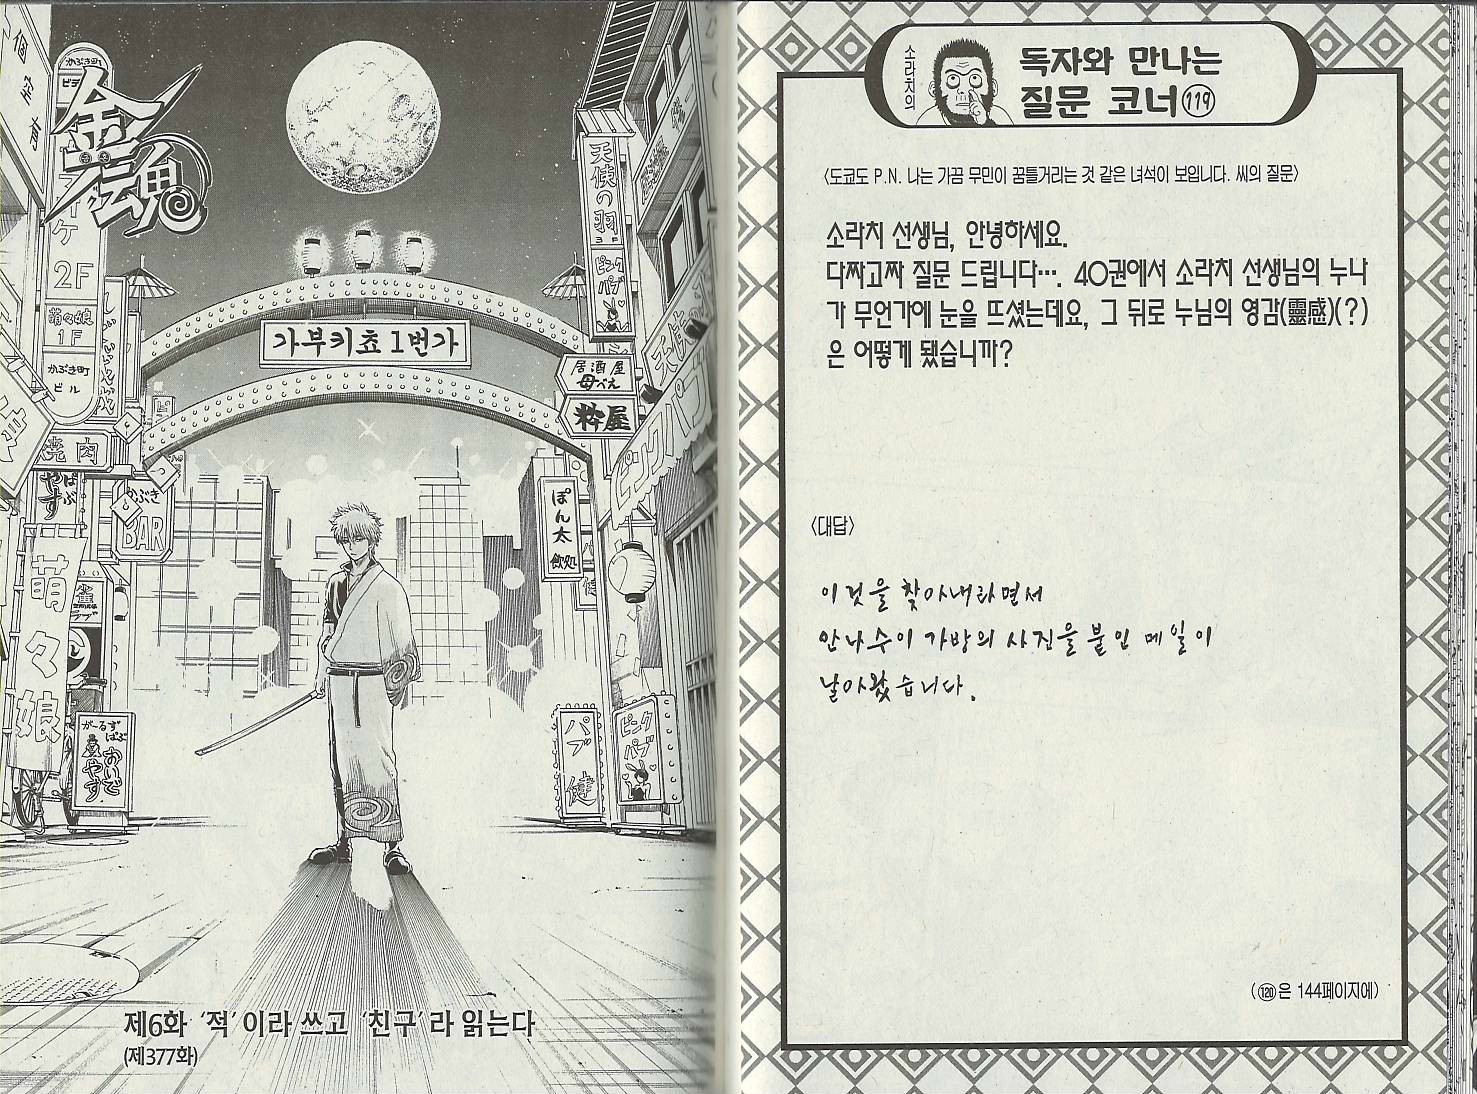 個室有
かぶき町
ビデ
金魂
ケ
2F
萌々娘
1F
かぶき町
ビル
焼肉
かぶき
BAR
萌々娘
が〜るず
ぱぶ
おいでやす
가부키쵸 1번가
天使の羽
ピンクパブ
居酒屋
母べえ
粋屋
天使
ピンクパブ
ぽん太
飲処
パブ
健
ピンク
パブ
제6화 '적'이라 쓰고 '친구'라 읽는다
(제377화)
소라치의
독자와 만나는
질문 코너 119
<도쿄도 P.N. 나는 가끔 무민이 꿈틀거리는 것 같은 녀석이 보입니다. 씨의 질문>
소라치 선생님, 안녕하세요.
다짜고짜 질문 드립니다…. 40권에서 소라치 선생님의 누나
가 무언가에 눈을 뜨셨는데요, 그 뒤로 누님의 영감(靈感)(?)
은 어떻게 됐습니까?
<대답>
이것을 찾아내라면서
안나수이 가방의 사진을 붙인 메일이
날아왔습니다.
(120은 144페이지에)